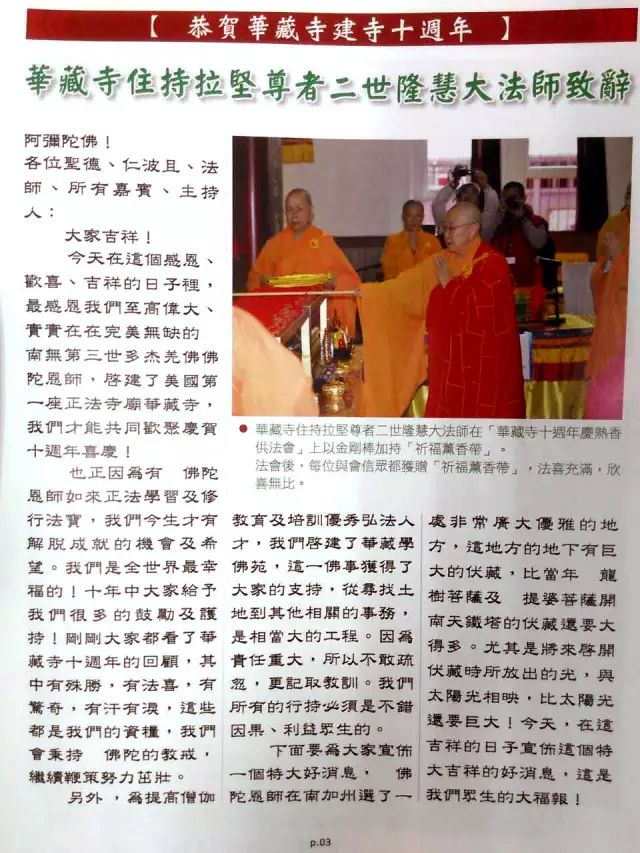 【 恭賀華藏寺建寺十週年 】
華藏寺住持拉堅尊者二世隆慧大法師致辭
阿彌陀佛！
各位聖德、仁波且、法
師、所有嘉賓、主持
人：
大家吉祥！
今天在這個感恩、
歡喜、吉祥的日子裡，
最感恩我們至高偉大、
實實在在完美無缺的
南無第三世多杰羌佛佛
陀恩師，啓建了美國第
一座正法寺廟華藏寺，
我們才能共同歡聚慶賀
十週年喜慶！
也正因為有　佛陀
恩師如來正法學習及修
行法寶，我們今生才有
解脫成就的機會及希
望。我們是全世界最幸
福的！十年中大家給予
我們很多的鼓勵及護
持！剛剛大家都看了華
藏寺十週年的回顧，其
中有殊勝，有法喜，有
驚奇，有汗有淚，這些
都是我們的資糧，我們
會秉持　佛陀的教戒，
繼續鞭策努力茁壯。
另外，為提高僧伽
● 華藏寺住持拉堅尊者二世隆慧大法師在「華藏寺十週年慶熱香
供法會」上以金剛棒加持「祈福薰香帶」。
法會後，每位與會信眾都獲贈「祈福薰香帶」，法喜充滿，欣
喜無比。
教育及培訓優秀弘法人
才，我們啓建了華藏學
佛苑，這一佛事獲得了
大家的支持，從尋找土
地到其他相關的事務，
是相當大的工程。因為
責任重大，所以不敢疏
忽，更記取教訓。我們
所有的行持必須是不錯
因果、利益眾生的。
下面要為大家宣佈
一個特大好消息，　佛
陀恩師在南加州選了一
處非常廣大優雅的地
方，這地方的地下有巨
大的伏藏，比當年　龍
樹菩薩及　提婆菩薩開
南天鐵塔的伏藏還要大
得多。尤其是將來啓開
伏藏時所放出的光，與
太陽光相映，比太陽光
還要巨大！今天，在這
吉祥的日子宣佈這個特
大吉祥的好消息，這是
我們眾生的大福報！
p.03